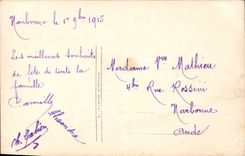 Narbonne le 1er 9bre 1915
Les meilleurs souhaits
de fête de toute la
famille
Madame Vve Mathieu
4bis Rue Rossini
Narbonne
Aude